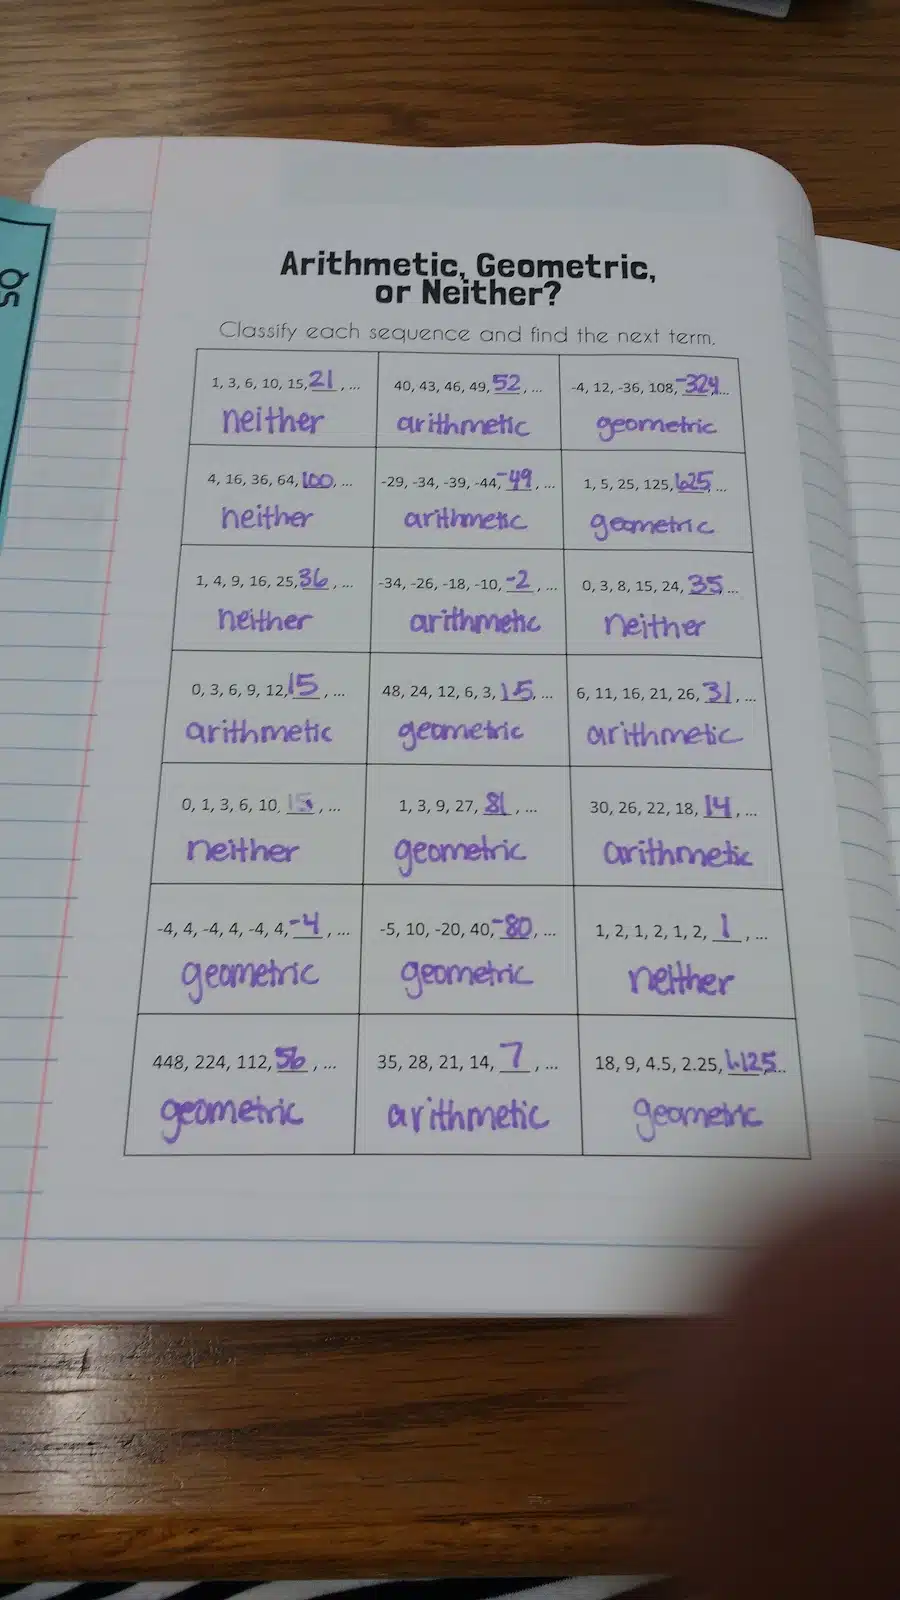 QS
Arithmetic, Geometric,
or Neither?
Classify each sequence and find the next term.
1, 3, 6, 10, 15, 21, ...
neither
40, 43, 46, 49, 52, ...
arithmetic
-4, 12, -36, 108, -324, ...
geometric
4, 16, 36, 64, 100, ...
neither
-29, -34, -39, -44, -49, ...
arithmetic
1, 5, 25, 125, 625, ...
geometric
1, 4, 9, 16, 25, 36, ...
neither
-34, -26, -18, -10, -2, ...
arithmetic
0, 3, 8, 15, 24, 35, ...
neither
0, 3, 6, 9, 12, 15, ...
arithmetic
48, 24, 12, 6, 3, 1.5, ...
geometric
6, 11, 16, 21, 26, 31, ...
arithmetic
0, 1, 3, 6, 10, 15, ...
neither
1, 3, 9, 27, 81, ...
geometric
30, 26, 22, 18, 14, ...
arithmetic
-4, 4, -4, 4, -4, 4, -4, ...
geometric
-5, 10, -20, 40, -80, ...
geometric
1, 2, 1, 2, 1, 2, 1, ...
neither
448, 224, 112, 56, ...
geometric
35, 28, 21, 14, 7, ...
arithmetic
18, 9, 4.5, 2.25, 1.125, ...
geometric